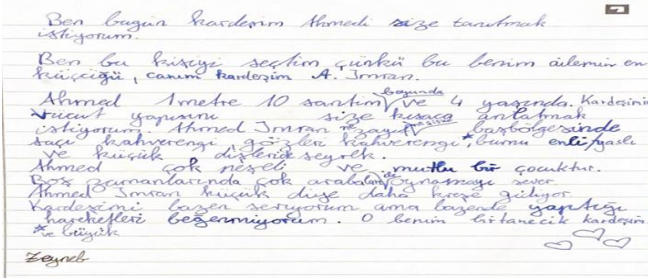 Ben bugün kardeşim Ahmedi size tanıtmak
istiyorum.
Ben bu kişiyi seçtim çünkü bu benim ailemin en
küçüğü, canım kardeşim A. Imran.
boyunda
Ahmed 1 metre 10 santim ve 4 yaşında. Kardeşimin
vücut yapısını size kısaca anlatmak
istiyorum Ahmed Imran zayıf başbölgesinde
saçı kahverengi, gözleri kahverengi, burnu enli/yaslı
ve küçük dişleride seyrek.
Ahmed çok neşeli ve mutlu bir çocuktur.
Boş zamanlarında çok arabalarla oynamayı sever.
Ahmed Imran küçük diye daha kreşe gidiyor.
Kardeşimi bazen seviyorum ama bazende yaptığı
hareketleri beğenmiyorum. O benim birtanecik kardeşim
* ve büyük
Zeyneb